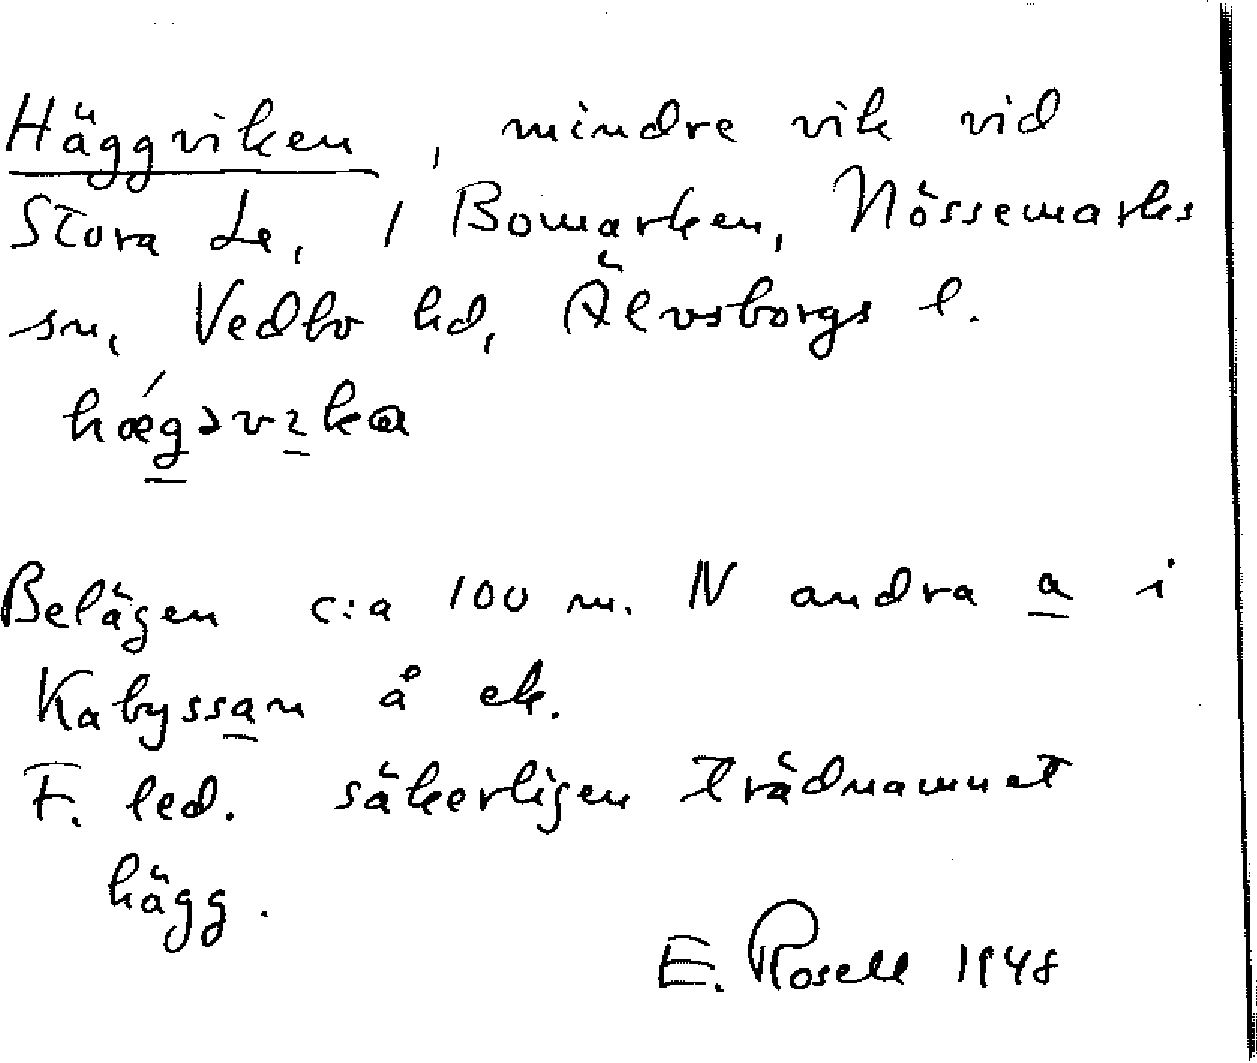 Häggviken, mindre vik vid
Stora Le, / Bomarken, Nössemarks
sn, Vedbo hd, Älvsborgs l.
hǽgəvıka
Belägen c:a 100 m. N andra a i
Kabyssan å ek.
F. led. säkerligen trädnamnet
hägg.
E. Rosell 1948